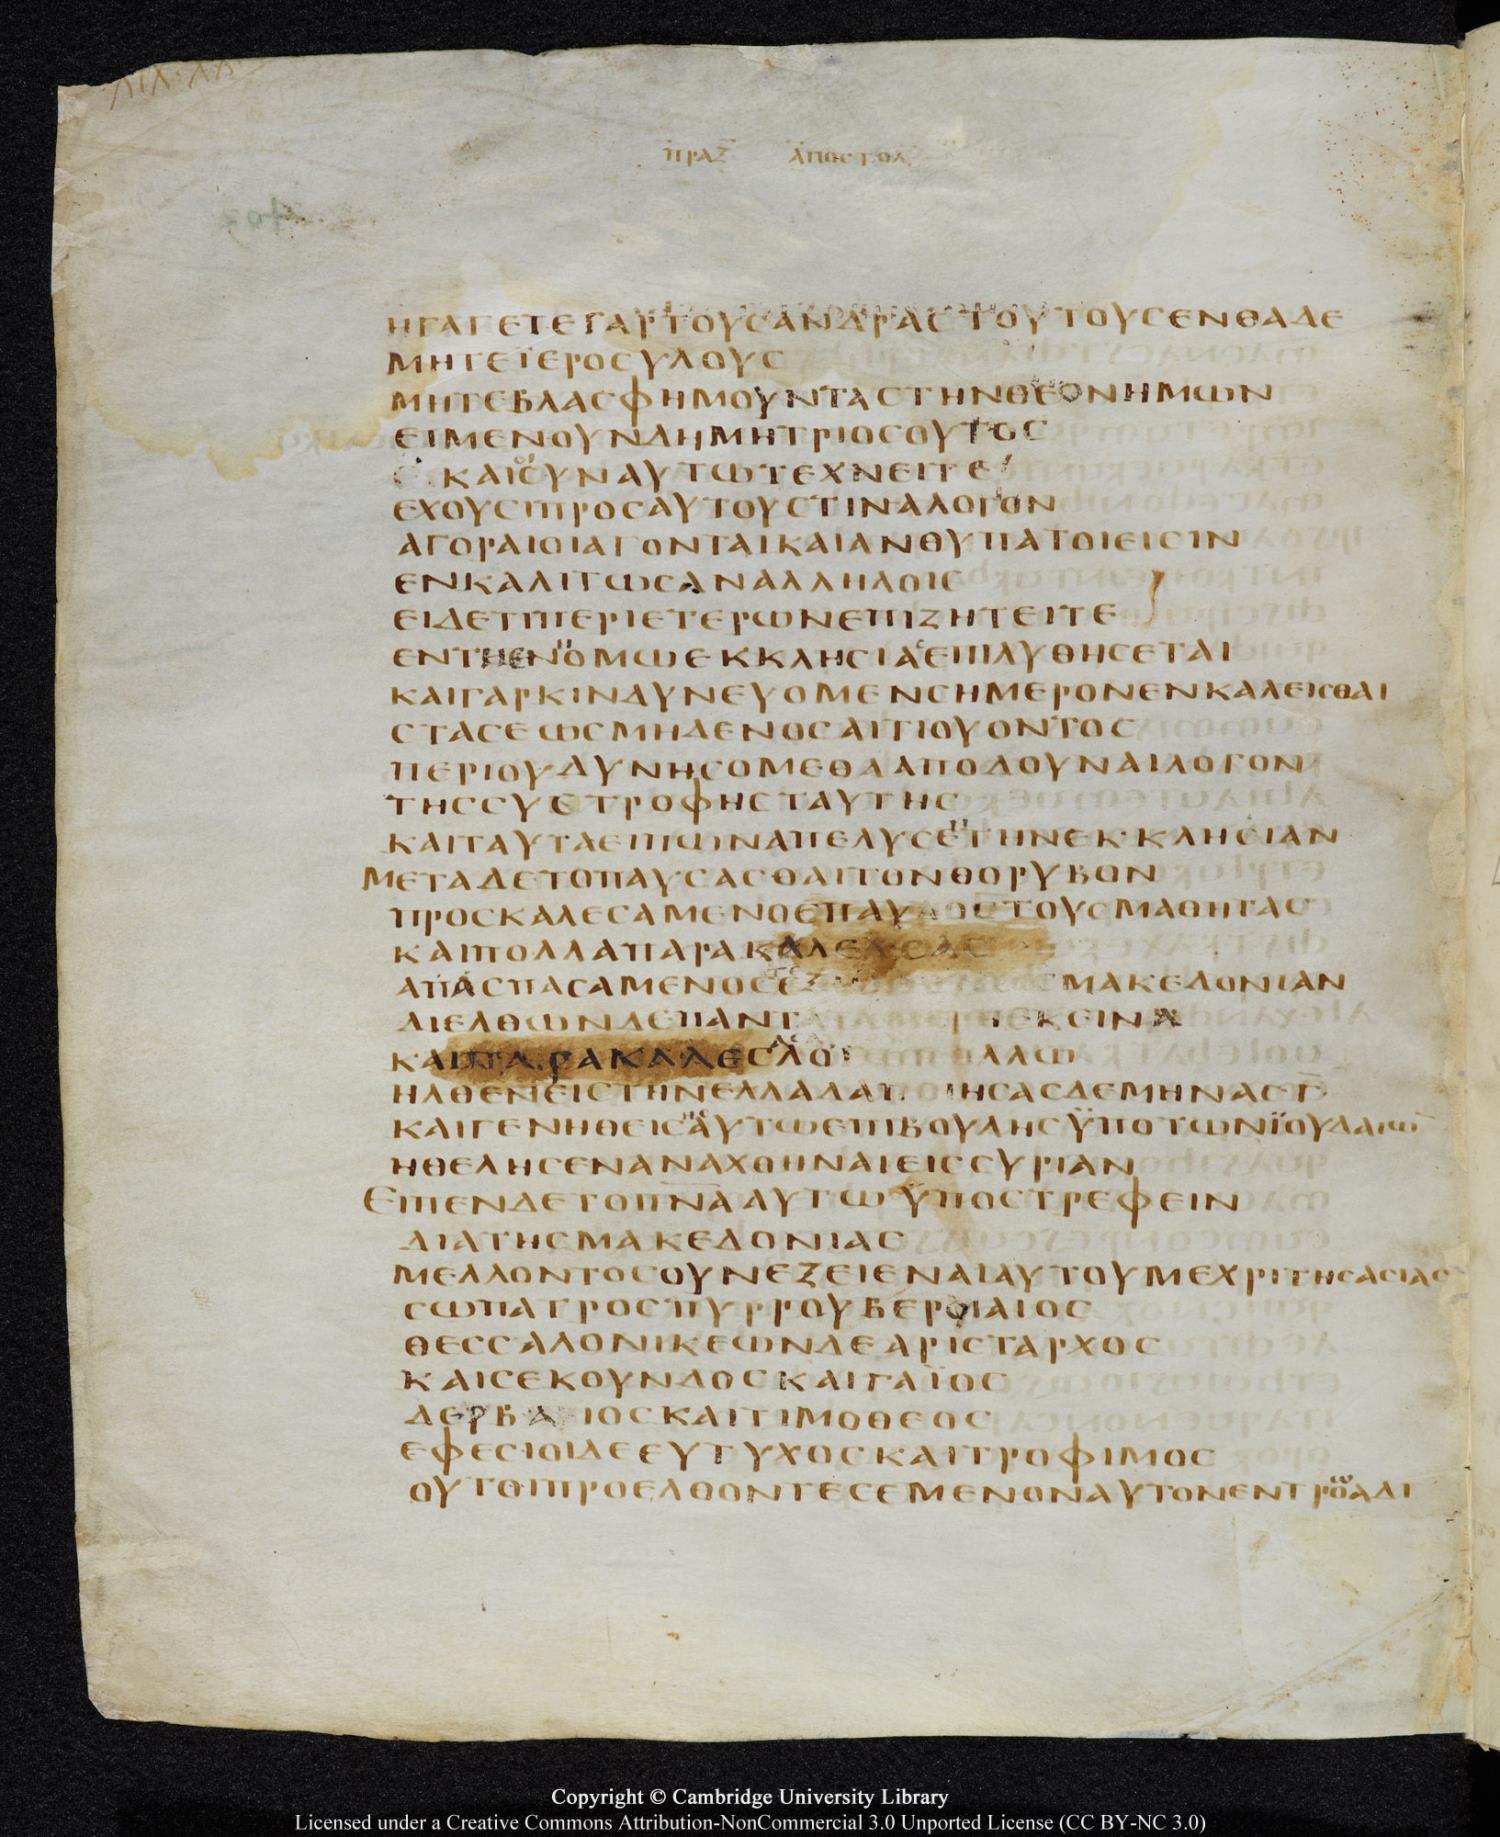 ΠΡΑΞ ΑΠΟСΤΟΛ
ΗΓΑΓΕΤΕΓΑΡΤΟΥСΑΝΔΡΑСΤΟΥΤΟΥСΕΝΘΑΔΕ
ΜΗΤΕΪΕΡΟСΥΛΟΥС
ΜΗΤΕΒΛΑСΦΗΜΟΥΝΤΑСΤΗΝΘΕΟΝΗΜΩΝ
ΕΙΜΕΝΟΥΝΔΗΜΗΤΡΙΟСΟΥΤΟС
ΚΑΙΟΙСΥΝΑΥΤΩΤΕΧΝΕΙΤΕ
ΕΧΟΥСΙΠΡΟСΑΥΤΟΥСΤΙΝΑΛΟΓΟΝ
ΑΓΟΡΑΙΟΙΑΓΟΝΤΑΙΚΑΙΑΝΘΥΠΑΤΟΙΕΙСΙΝ
ΕΝΚΑΛΙΤΩСΑΝΑΛΛΗΛΟΙС
ΕΙΔΕΤΙΠΕΡΙΕΤΕΡΩΝΕΠΙΖΗΤΕΙΤΕ
ΕΝΤΗΕΝΟΜΩΕΚΚΛΗСΙΑΕΠΙΛΥΘΗСΕΤΑΙ
ΚΑΙΓΑΡΚΙΝΔΥΝΕΥΟΜΕΝСΗΜΕΡΟΝΕΝΚΑΛΕΙСΘΑΙ
СΤΑСΕΩСΜΗΔΕΝΟСΑΙΤΙΟΥΟΝΤΟС
ΠΕΡΙΟΥΔΥΝΗСΟΜΕΘΑΑΠΟΔΟΥΝΑΙΛΟΓΟΝ
ΤΗССΥСΤΡΟΦΗСΤΑΥΤΗС
ΚΑΙΤΑΥΤΑΕΙΠΩΝΑΠΕΛΥСΕΤΗΝΕΚΚΛΗСΙΑΝ
ΜΕΤΑΔΕΤΟΠΑΥСΑСΘΑΙΤΟΝΘΟΡΥΒΟΝ
ΠΡΟСΚΑΛΕСΑΜΕΝΟСΠΑΥΛΟСΤΟΥСΜΑΘΗΤΑС
ΚΑΙΠΟΛΛΑΠΑΡΑΚΑΛΕΥСΑС
ΑΠΑСΠΑСΑΜΕΝΟСΕΞ ΜΑΚΕΔΟΝΙΑΝ
ΔΙΕΛΘΩΝΔΕΠΑΝΤ ΕΚΕΙΝΑ
ΚΑΙΠΑΡΑΚΑΛΕСΑС ΛΟΓΩΠΟΛΛΩ
ΗΛΘΕΝΕΙСΤΗΝΕΛΛΑΔΑΠΟΙΗСΑСΔΕΜΗΝΑСΓ̄
ΚΑΙΓΕΝΗΘΕΙСΑΥΤΩΕΠΙΒΟΥΛΗСΫΠΟΤΩΝΪΟΥΔΑΙΩ̄
ΗΘΕΛΗСΕΝΑΝΑΧΘΗΝΑΙΕΙССΥΡΙΑΝ
ΕΙΠΕΝΔΕΤΟΠ̅Ν̅Α̅ΑΥΤΩΫΠΟСΤΡΕΦΕΙΝ
ΔΙΑΤΗСΜΑΚΕΔΟΝΙΑС
ΜΕΛΛΟΝΤΟСΟΥΝΕΞΕΙΕΝΑΙΑΥΤΟΥΜΕΧΡΙΤΗСΑСΙΑС
СΩΠΑΤΡΟСΠΥΡΡΟΥΒΕΡΟΙΑΙΟС
ΘΕССΑΛΟΝΙΚΕΩΝΔΕΑΡΙСΤΑΡΧΟС
ΚΑΙСΕΚΟΥΝΔΟСΚΑΙΓΑΪΟС
ΔΕΡΒΑΙΟСΚΑΙΤΙΜΟΘΕΟС
ΕΦΕСΙΟΙΔΕΕΥΤΥΧΟСΚΑΙΤΡΟΦΙΜΟС
ΟΥΤΟΙΠΡΟΕΛΘΟΝΤΕСΕΜΕΝΟΝΑΥΤΟΝΕΝΤΡΩΑΔΙ
Copyright © Cambridge University Library
Licensed under a Creative Commons Attribution-NonCommercial 3.0 Unported License (CC BY-NC 3.0)